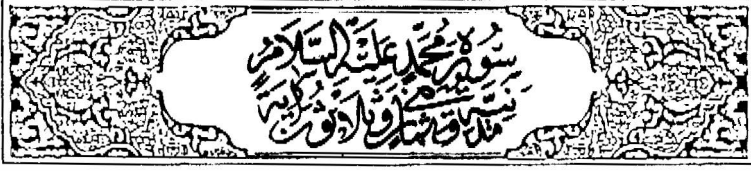 سورة محمد عليه السلام
مدنية وهي ثمان وثلاثون آية